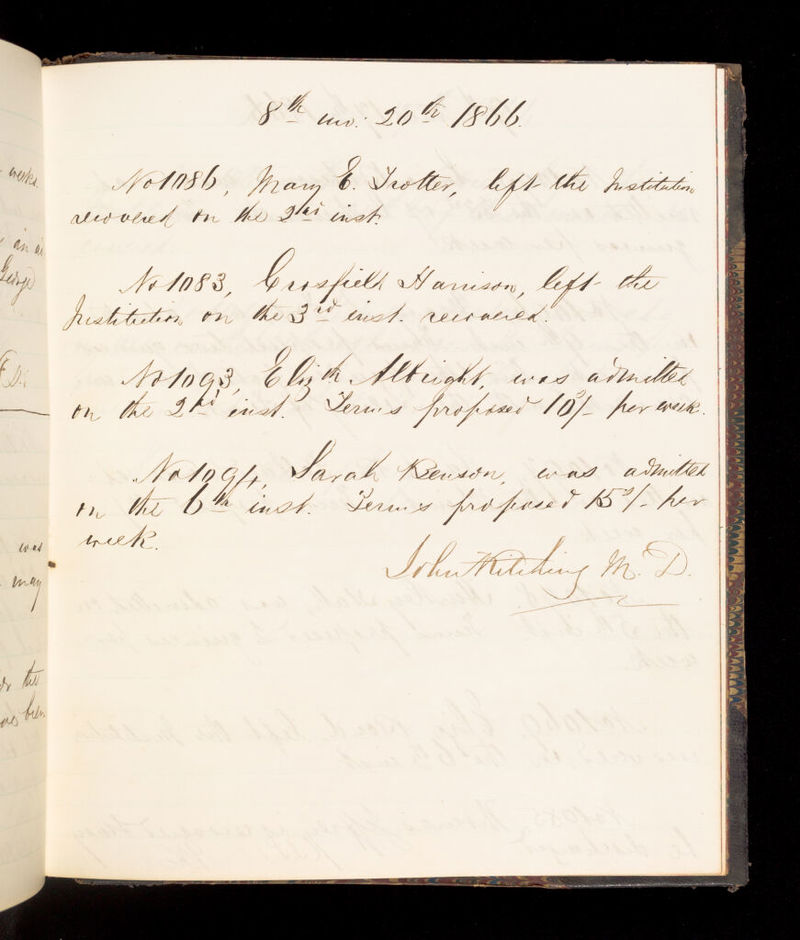 works.
an
George
was
may
the
been
8th mo: 20th 1866.
No 1086, Mary E. Trotter, left the Institution
recovered on the 2nd inst.
No 1083, Crosfield Harrison, left the
Institution on the 3rd inst. recovered.
No 1093, Elizth Albright, was admitted
on the 2nd inst. Terms proposed 10s/- per week.
No 1094, Sarah Benson, was admitted
on the 6th inst. Terms proposed 15s/- per
week.
John Kitching M. D.